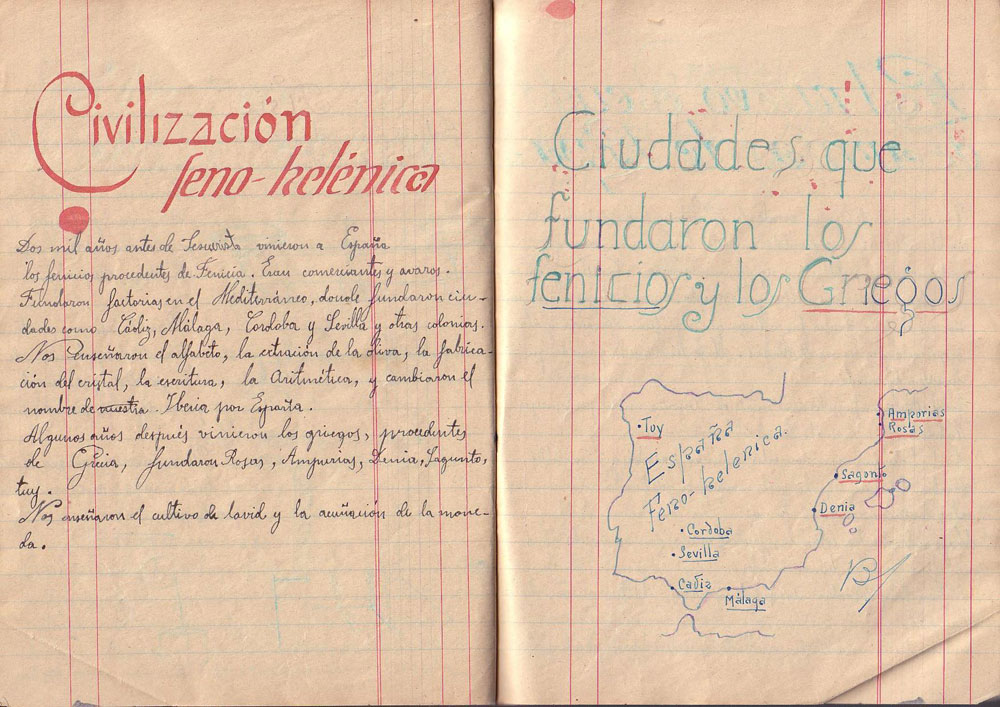 Civilización
feno-helénica
Dos mil años antes de Jesucristo vinieron a España
los fenicios procedentes de Fenicia. Eran comerciantes y avaros.
Fundaron factorias en el Mediterráneo, donde fundaron ciu-
dades como Cádiz, Málaga, Cordoba y Sevilla y otras colonias.
Nos enseñaron el alfabeto, la extración de la oliva, la fabrica-
ción del cristal, la escritura, la Aritmética, y cambiaron el
nombre de nuestra Iberia por España.
Algunos años después vinieron los griegos, procedentes
de Grecia, fundaron Rosas, Ampurias, Denia, Sagunto,
tuy.
Nos enseñaron el cultivo de la vid y la acuñación de la mone-
da.
Ciudades que
fundaron los
fenicios y los Griegos
Tuy
España
Feno-helenica.
Amporias
Rosas
Sagonto
Denia
Cordoba
Sevilla
Cadiz
Málaga